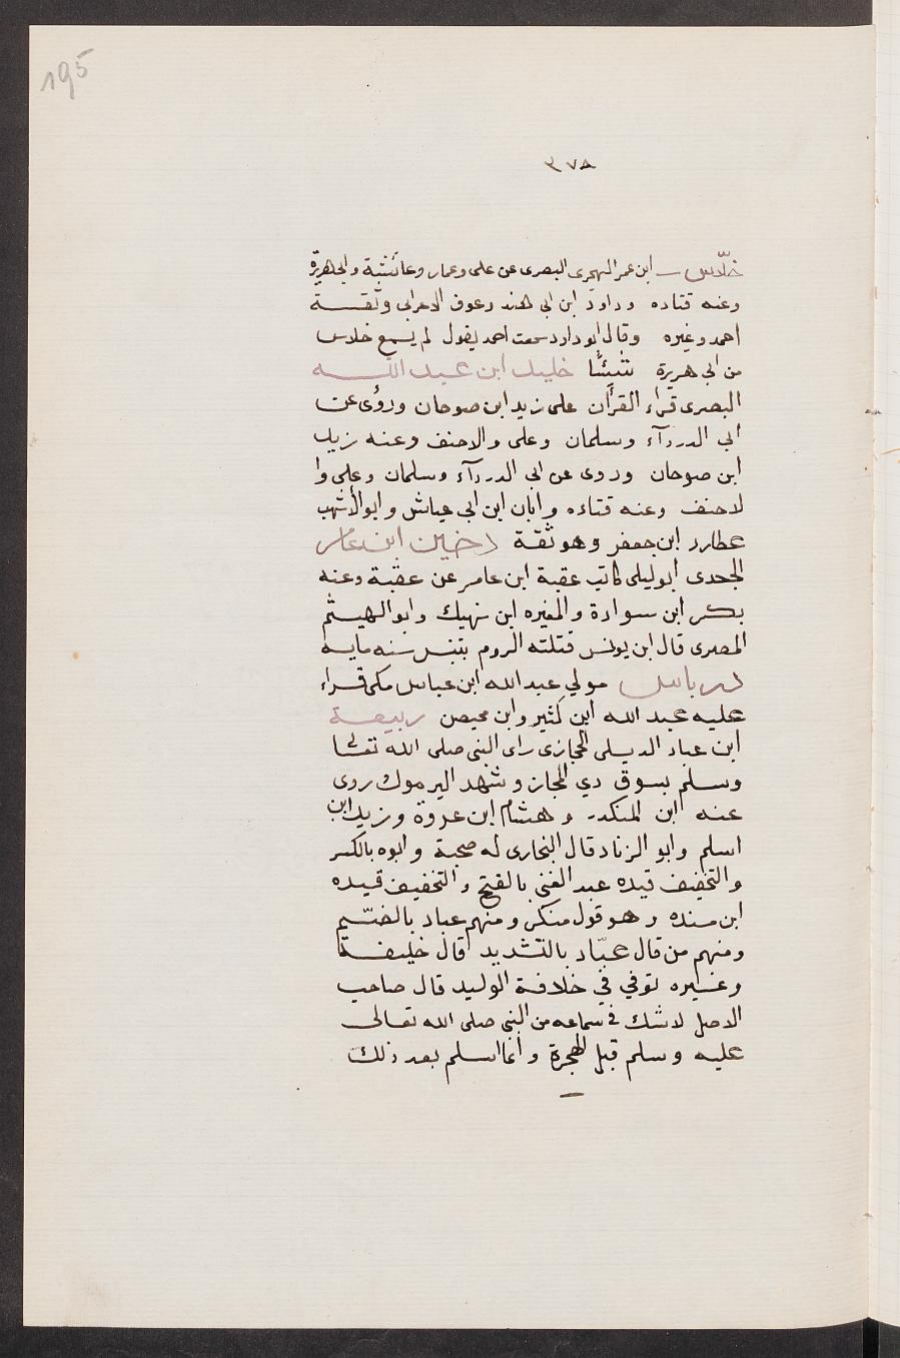 195
٣٧٨
خلّاس ابن عمر الهجرى البصرى عن على وعمار وعائشة وابى هريرة
وعنه قتاده وداود ابن ابى هند وعوف الاعرابى وثقـــة
احمد وغيره وقال ابو داود سمعت احمد يقول لم يسمع خلاس
من ابى هريرة شيئًا خليد ابن عبد اللـــه
البصرى قراء القرأن على زيد ابن صوحان وروى عن
ابي الدردآء وسلمان وعلى والاحنف وعنه زيد
ابن صوحان وروى عن ابى الدردآء وسلمان وعلى وا
لاحنف وعنه قتاده وابان ابن ابى عياش وابو الأشهب
عطارد ابن جعفر وهو ثقة دخين ابن عامر
الحجدى ابو ليلى كاتب عقبة ابن عامر عن عقبة وعنه
بكر ابن سوادة والمغيره ابن نهيك وابو الهيثم
المصرى قال ابن يونس قتلته الروم بتنيس سنه مايـه
درباس مولي عبد الله ابن عباس مكى قراء
عليه عبد الله ابن كثير وابن محيصن ربيعـة
ابن عباد الديلى الحجازى راى النبى صلى الله تعلى
وسلم بسوق دي المجاز وشهد اليرموك روى
عنه ابن المنكدر وهشام ابن عروة وزيد ابن
اسلم وابو الزناد قال البخارى له صحبة وابوه بالكسر
والتخفيف قيده عبد الغنى بالفتح والتخفيف قيده
ابن منده وهو قول منكر ومنهم عباد بالضـّم
ومنهم من قال عبّاد بالتشديد قال خليفـة
وغيره توفي في خلافة الوليد قال صاحب
الاصل لا شك فى سماعه من النبى صلى الله تعالى
عليه وسلم قبل الهجرة وانما اسلم بعد ذلك